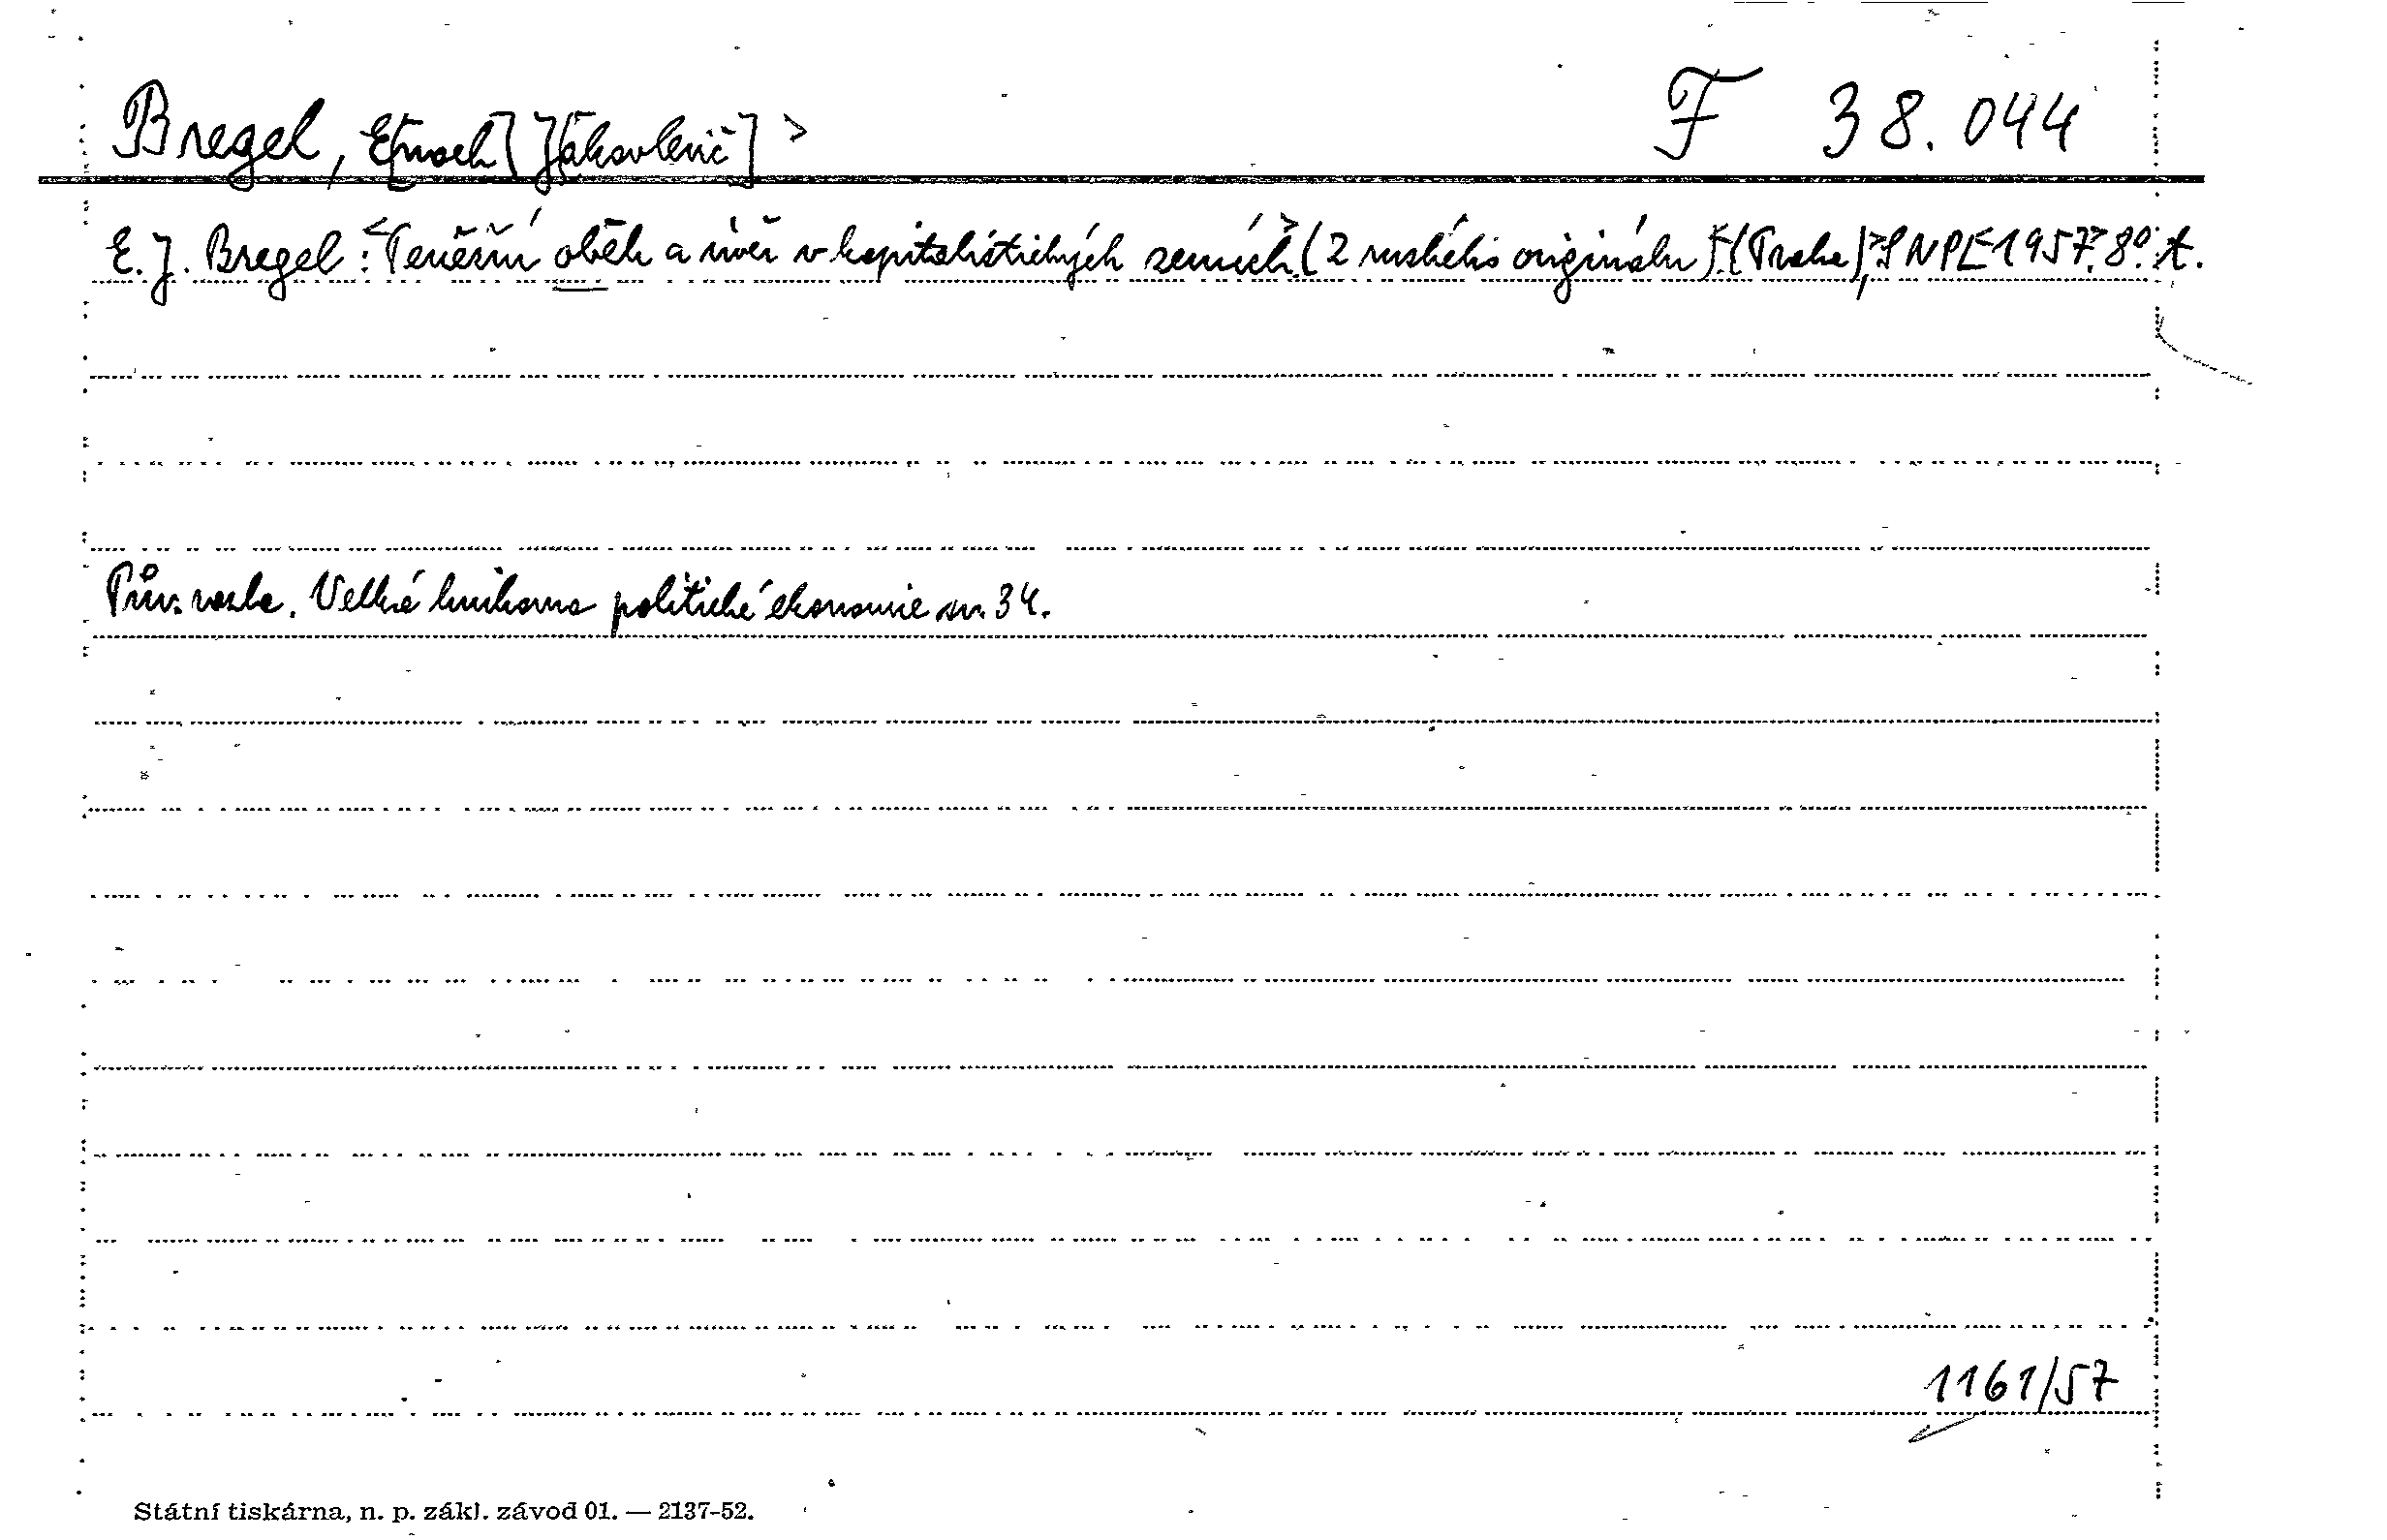 Bregel, E[noch] J[akovlevič] > F 38.044
E. J. Bregel: <Peněžní oběh a úvěr v kapitalistických zemích> (Z ruského originálu). (Praha), >SNPL< 1957. 8°. A.
Pův. vazba. Velká knihovna politické ekonomie sv. 34.
1161/57
Státní tiskárna, n. p. zákl. závod 01. — 2137-52.